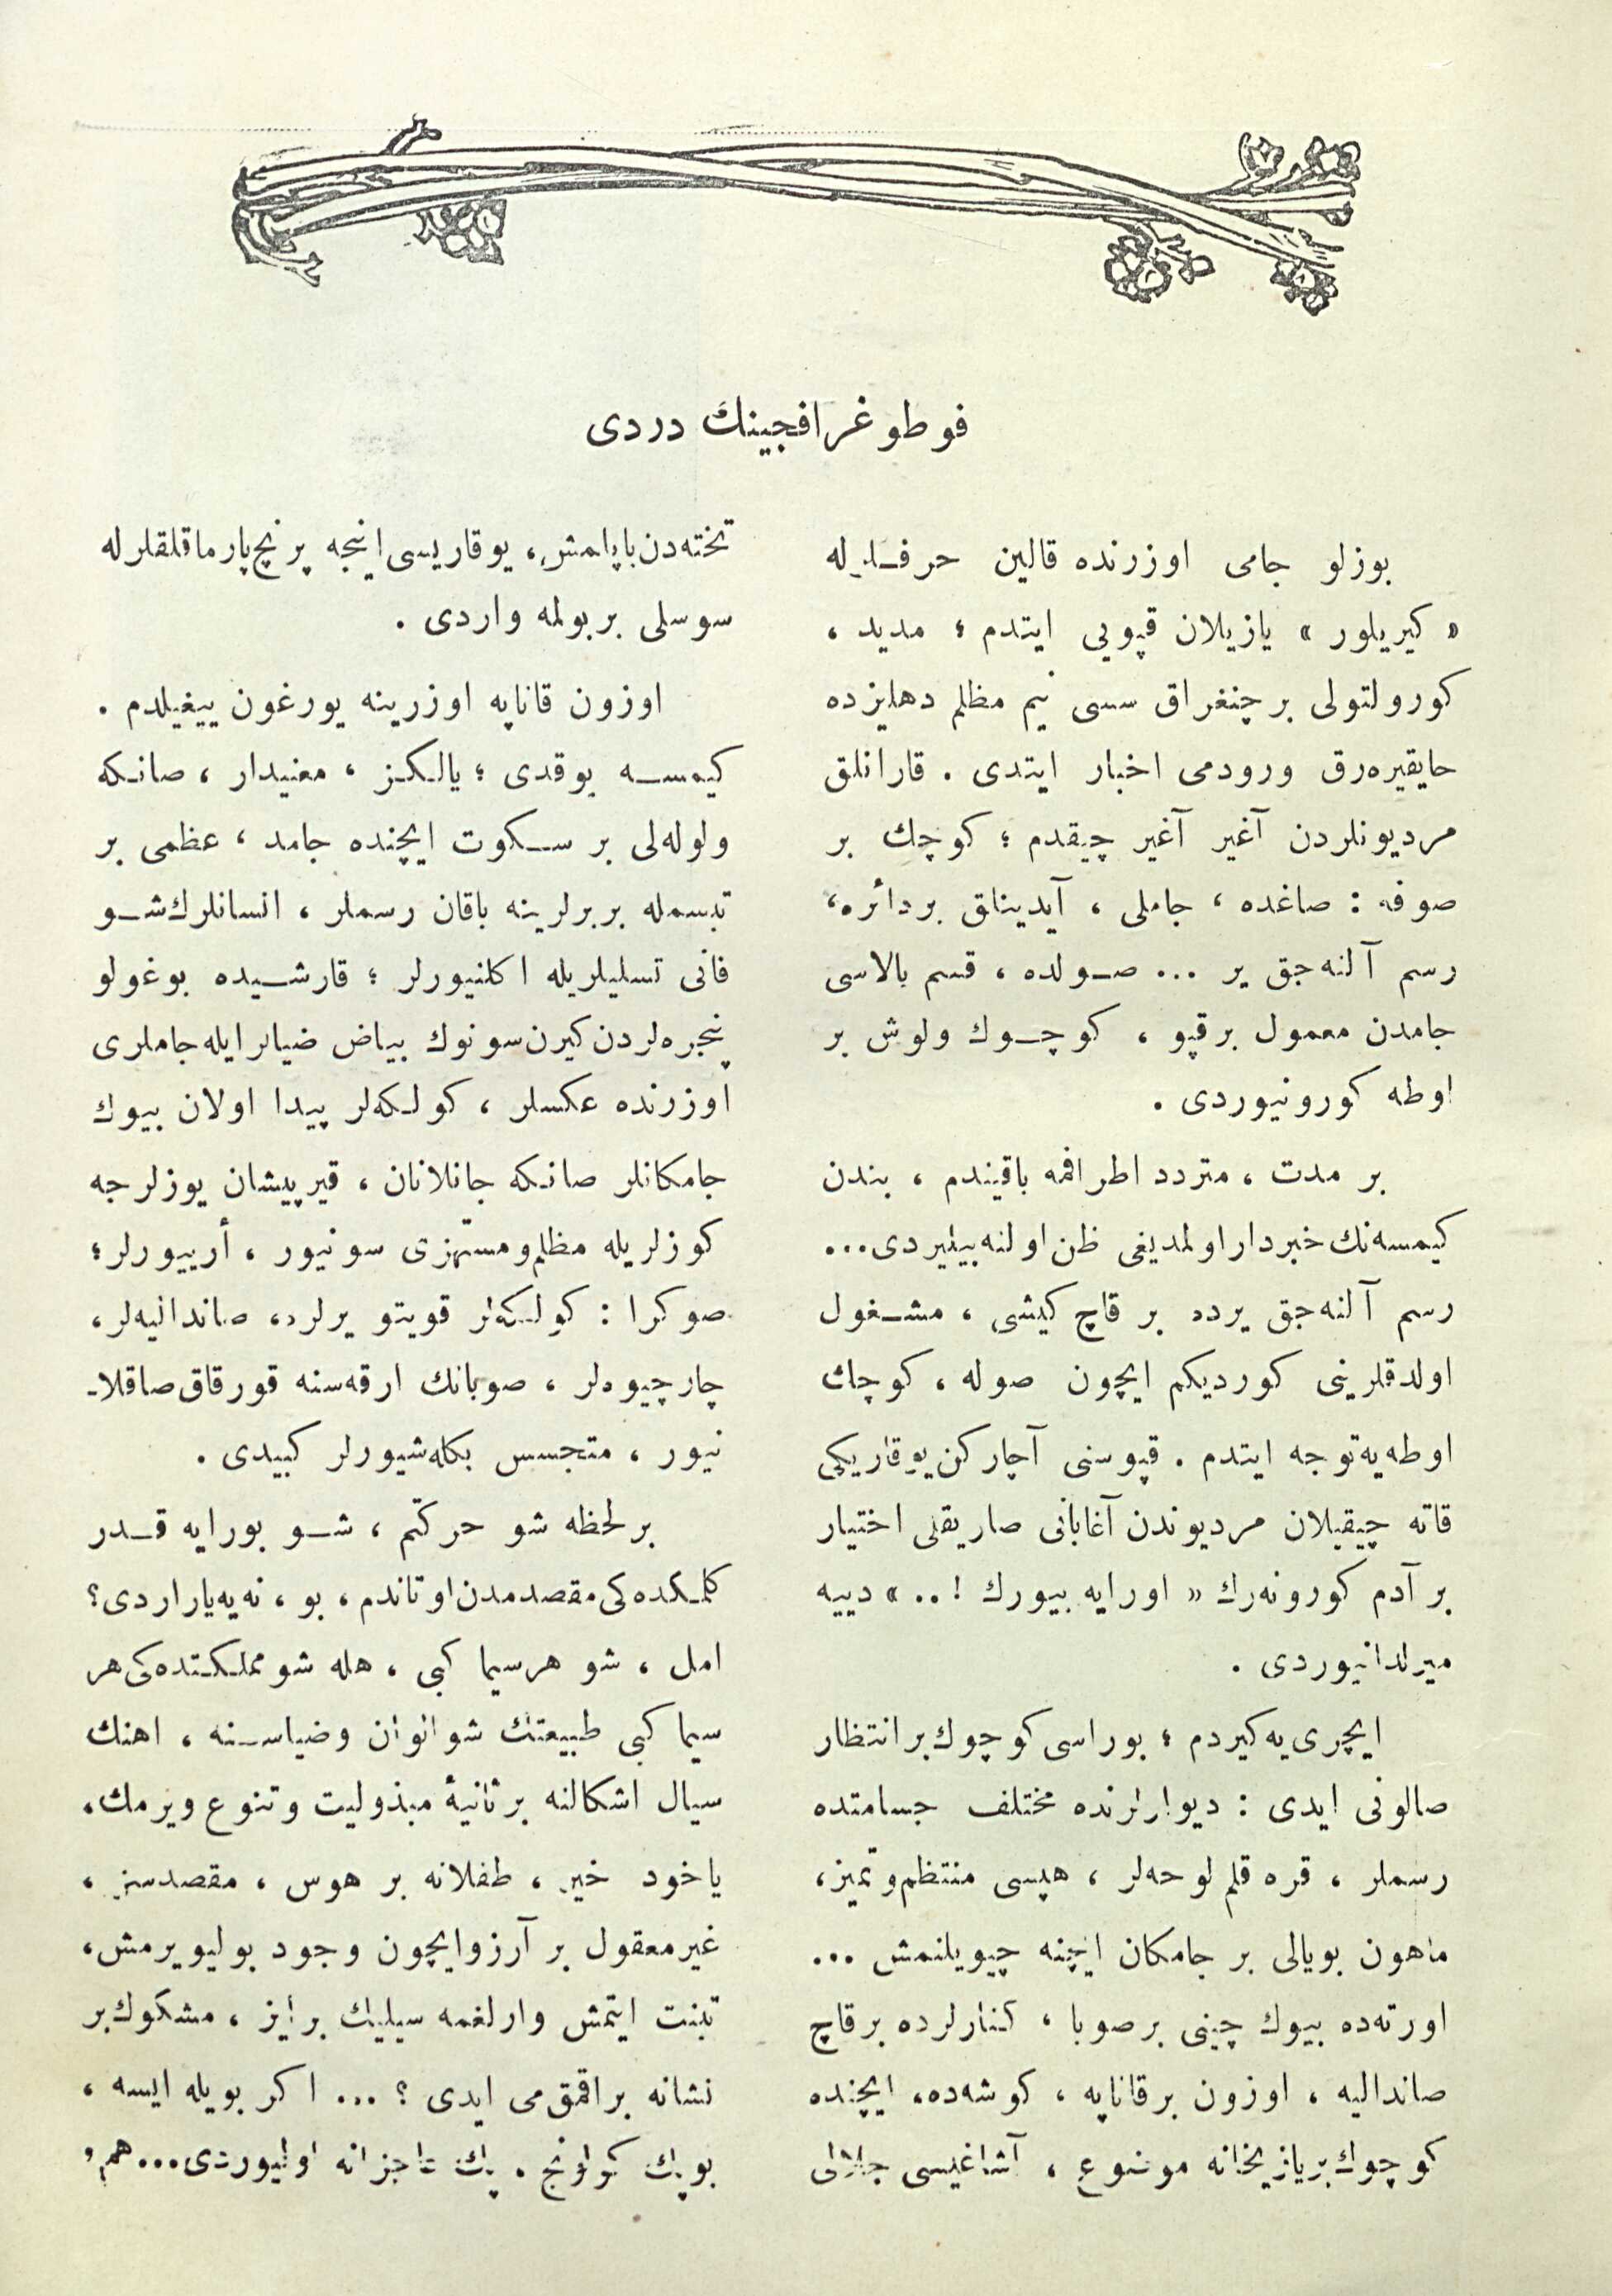 فوطوغرافجينك دردى
بوزلو جامى اوزرنده قالين حرفلرله
« كيريلور » يازيلان قپويى ايتدم ؛ مديد ،
كورولتولى بر چنغراق سسى نيم مظلم دهليزده
حايقيره‌رق ورودمى اخبار ايتدى . قارانلق
مرديونلردن آغير آغير چيقدم ؛ كوچك بر
صوفه : صاغده ، جاملى ، آيدينلق بر دائره ،
رسم آلنه‌جق ير ... صولده ، قسم بالاسى
جامدن معمول بر قپو ، كوچوك ولوش بر
اوطه كورونيوردى .
بر مدت ، متردد اطرافمه باقيندم ، بندن
كيمسه‌نك خبردار اولمديغى ظن اولنه‌بيليردى...
رسم آلنه‌جق يرده بر قاچ كيشى ، مشغول
اولدقلرينى كورديكم ايچون صوله ، كوچك
اوطه‌يه توجه ايتدم . قپوسنى آچاركن يوقاريكى
قاته چيقيلان مرديوندن آغابانى صاريقلى اختيار
بر آدم كورونه‌رك « اورايه بيورك ! .. » دييه
ميرلدانيوردى .
ايچرى‌يه كيردم ؛ بوراسى كوچوك بر انتظار
صالونى ايدى : ديوارلرنده مختلف جسامتده
رسملر ، قره قلم لوحه‌لر ، هپسى منتظم و تميز ،
ماهون بويالى بر جامكان ايچنه چيويلنمش ...
اورته‌ده بيوك چينى بر صوبا ، كنارلرده بر قاچ
صانداليه ، اوزون بر قاناپه ، كوشه‌ده ، ايچنده
كوچوك بر يازيخانه موضوع ، آشاغيسى جلالى
تخته‌دن ياپلمش ، يوقاريسى اينجه پرنچ پارماقلقلرله
سوسلى بر بولمه واردى .
اوزون قاناپه اوزرينه يورغون ييغيلدم .
كيمسه يوقدى ؛ يالكز ، معنيدار ، صانكه
ولوله‌لى بر سكوت ايچنده جامد ، عظمى بر
تبسمله بربرلرينه باقان رسملر ، انسانلرك شو
فانى تسليلريله اكلنيورلر ؛ قارشيده بوغولو
پنجره‌لردن كيرن سونوك بياض ضيالر ايله جاملرى
اوزرنده عكسلر ، كولكه‌لر پيدا اولان بيوك
جامكانلر صانكه جانلانان ، قيرپيشان يوزلرجه
كوزلريله مظلم و مستهزى سونيور ، أرييورلر ؛
صوكرا : كولكه‌لر قويتو يرلره ، صاندالیه‌لر ،
چارچيوه‌لر ، صوبانك ارقه‌سنه قورقاق صاقلا-
نيور ، متجسس بكله‌شيورلر كبيدى .
بر لحظه شو حركتم ، شو بورايه قدر
كلمكده‌كى مقصدمدن اوتاندم ، بو ، نه‌يه يارارد‌ى ؟
امل ، شو هر سيما كبى ، هله شو مملكتده‌كى هر
سيما كبى طبيعتك شو الوان وضياسنه ، اهنك
سيال اشكالنه بر ثانيۀ مبذوليت و تنوع ويرمك ،
ياخود خير ، طفلانه بر هوس ، مقصدسز ،
غيرمعقول بر آرزو ايچون وجود بوليويرمش ،
تبنت ايتمش وارلغمه سيليك بر ايز ، مشكوك بر
نشانه براقمق مى ايدى ؟ ... اكر بويله ايسه ،
بو پك كولونج . پك عاجزانه اوليوردى... هم ،